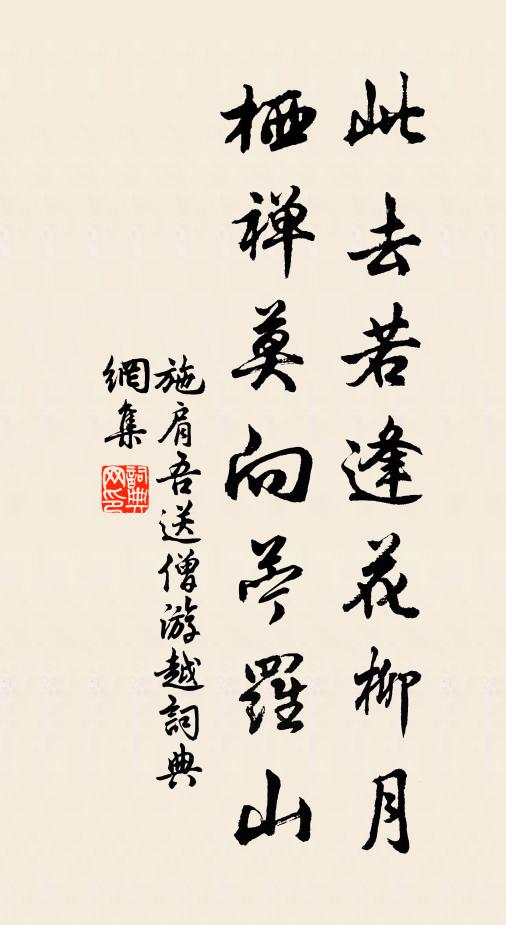 此去若逢花柳月
栖禅莫向苎羅山
施肩吾送僧游越詞典
網集
詞典
网印